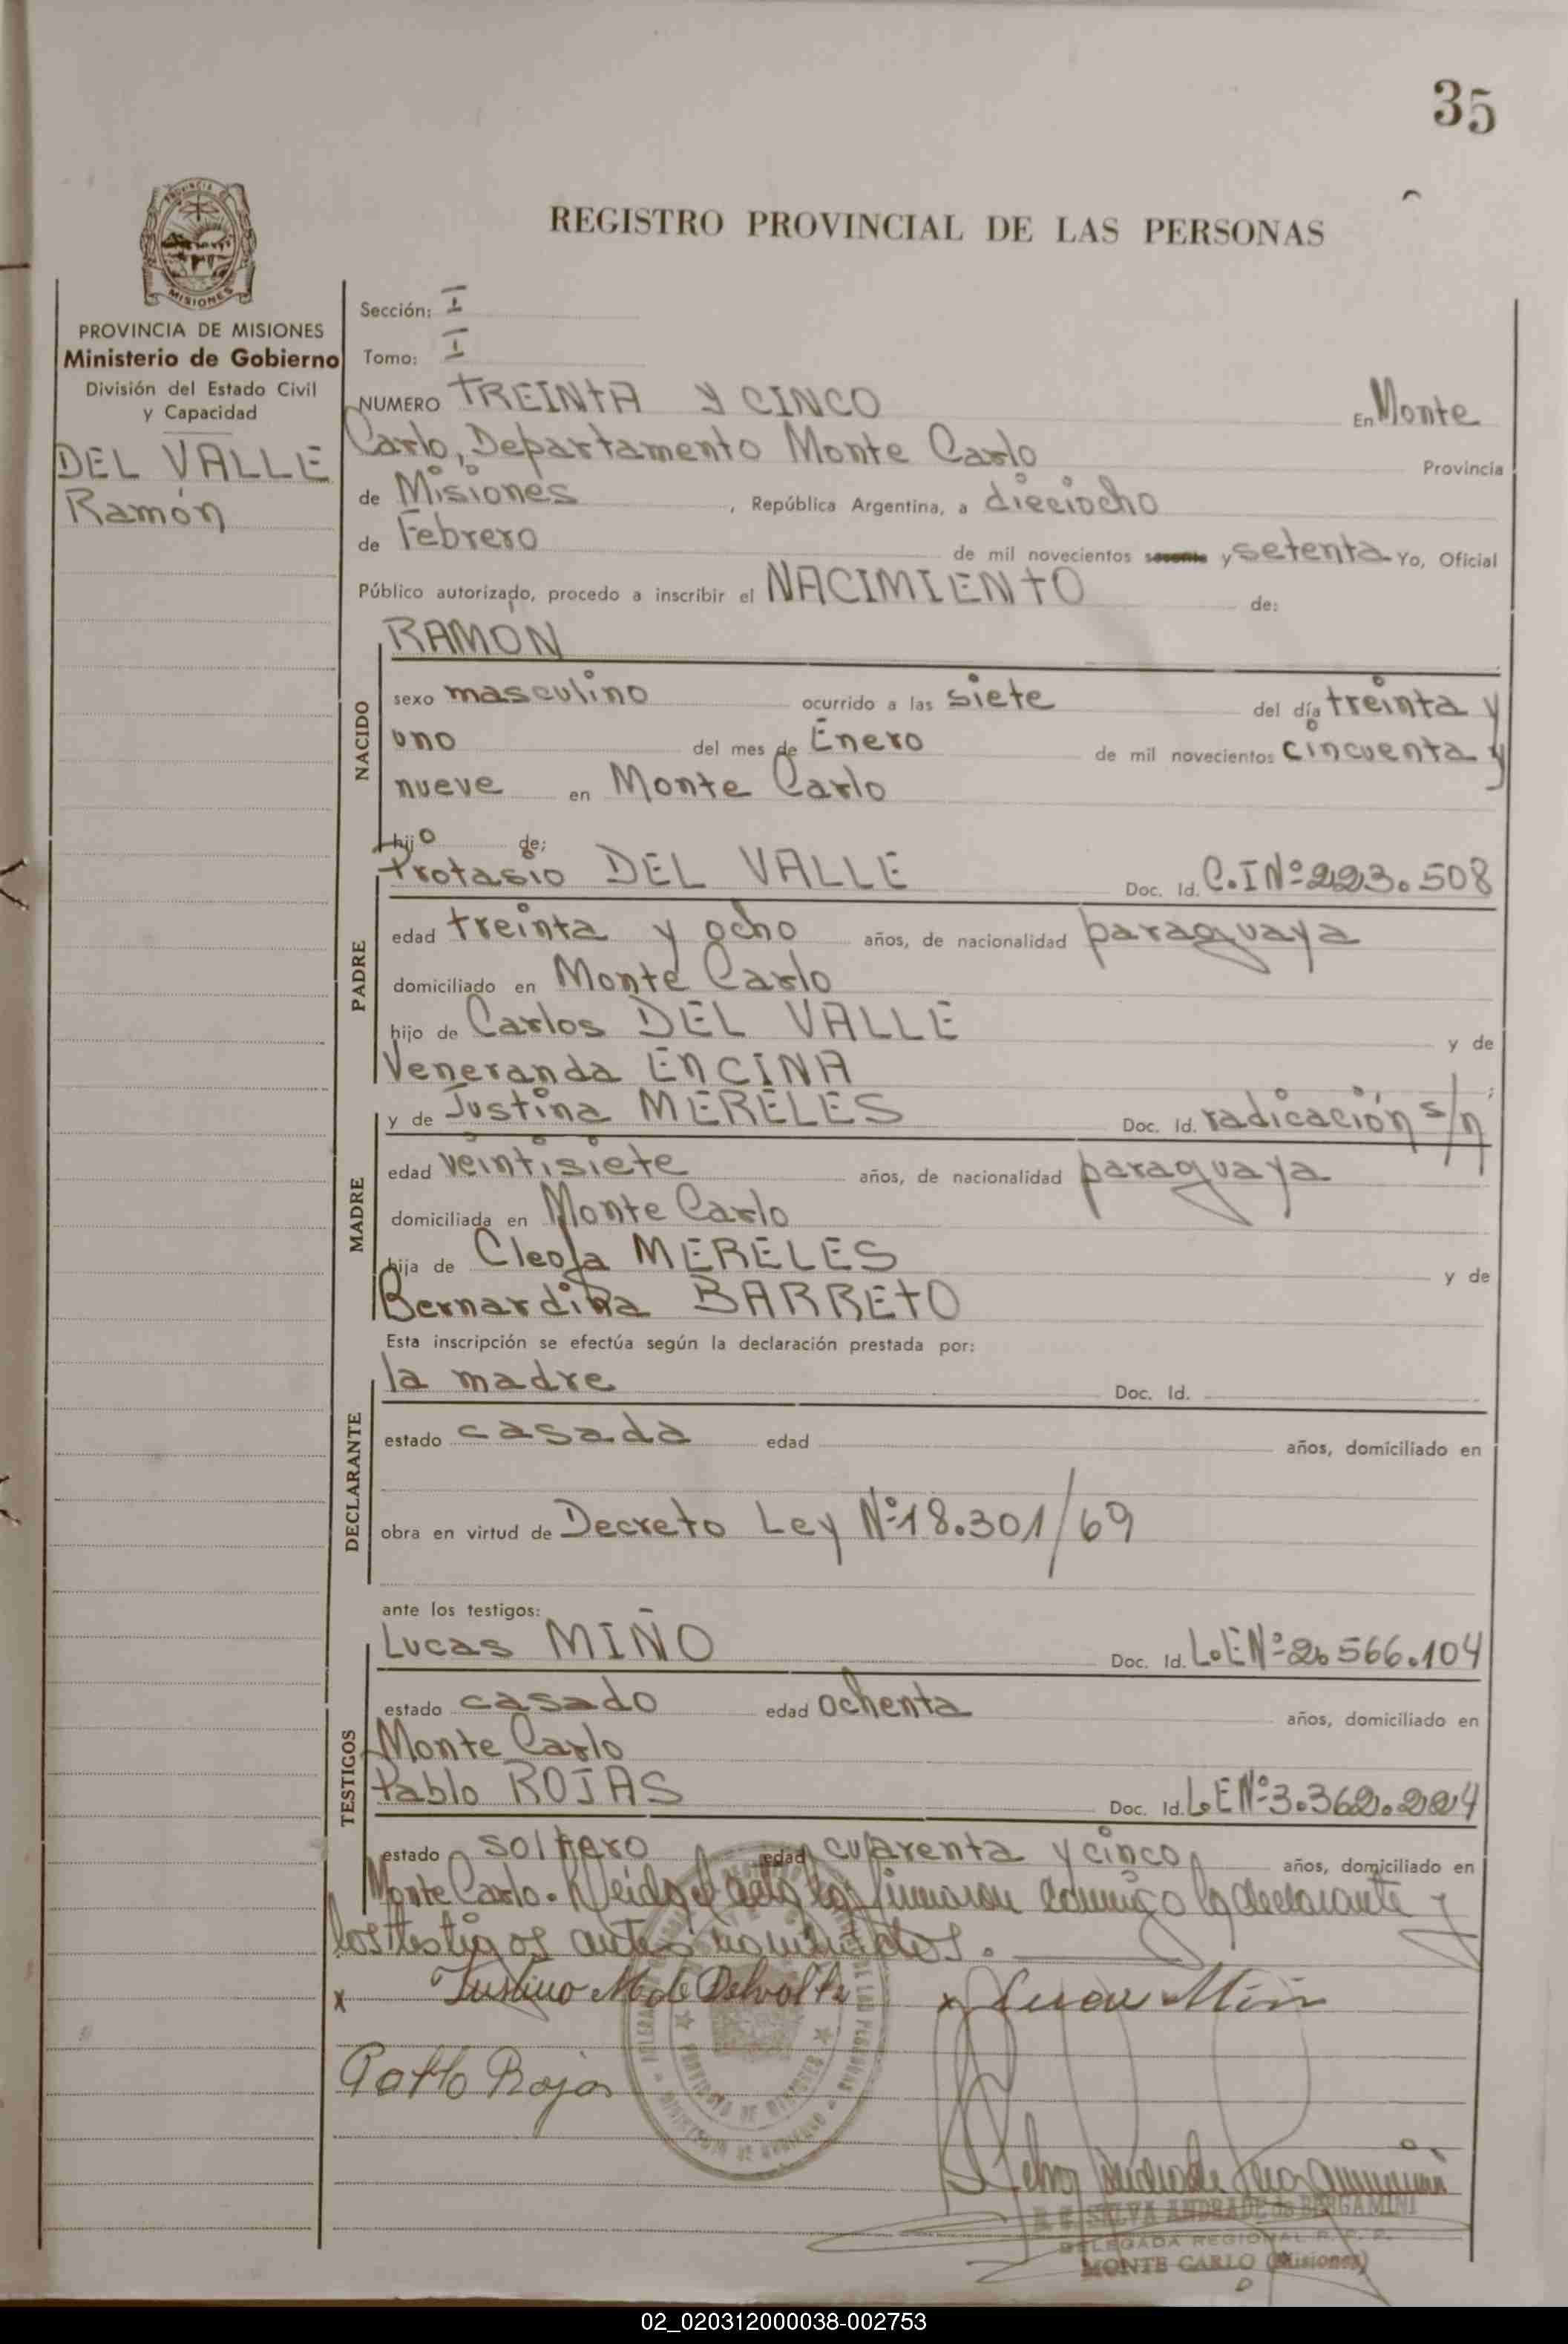 35
REGISTRO PROVINCIAL DE LAS PERSONAS
MISIONES
PROVINCIA DE MISIONES
Ministerio de Gobierno
División del Estado Civil
y Capacidad
DEL VALLE
Ramón
Sección: I
Tomo: I
NUMERO TREINTA Y CINCO En Monte
Carlo, Departamento Monte Carlo Provincia
de Misiones, República Argentina, a dieciocho
de Febrero de mil novecientos sesenta y setenta Yo, Oficial
Público autorizado, procedo a inscribir el NACIMIENTO de:
RAMON
NACIDO
sexo masculino ocurrido a las siete del día treinta y
uno del mes de Enero de mil novecientos cincuenta y
nueve en Monte Carlo
hijo de;
Protasio DEL VALLE Doc. Id. C.I Nº 223.508
PADRE
edad treinta y ocho años, de nacionalidad paraguaya
domiciliado en Monte Carlo
hijo de Carlos DEL VALLE y de
Veneranda ENCINA
y de Justina MERELES Doc. Id. radicación s/n
MADRE
edad veintisiete años, de nacionalidad paraguaya
domiciliada en Monte Carlo
hija de Cleofa MERELES y de
Bernardina BARRETO
Esta inscripción se efectúa según la declaración prestada por:
la madre Doc. Id.
DECLARANTE
estado casada edad años, domiciliado en
obra en virtud de Decreto Ley Nº 18.301/69
ante los testigos:
Lucas MIÑO Doc. Id. L.E Nº 2.566.104
TESTIGOS
estado casado edad ochenta años, domiciliado en
Monte Carlo
Pablo ROJAS Doc. Id. L.E Nº 3.362.224
estado soltero edad cuarenta y cinco años, domiciliado en
Monte Carlo. Leida el acta la firmaron conmigo la declarante y
los testigos antes nominados.
x Justino M de Delvalle x Lucas Miño
Pablo Rojas
PROVINCIA DE MISIONES
SILVA ANDRADE de BERGAMINI
DELEGADA REGIONAL R. P. P.
MONTE CARLO (Misiones)
02_020312000038-002753